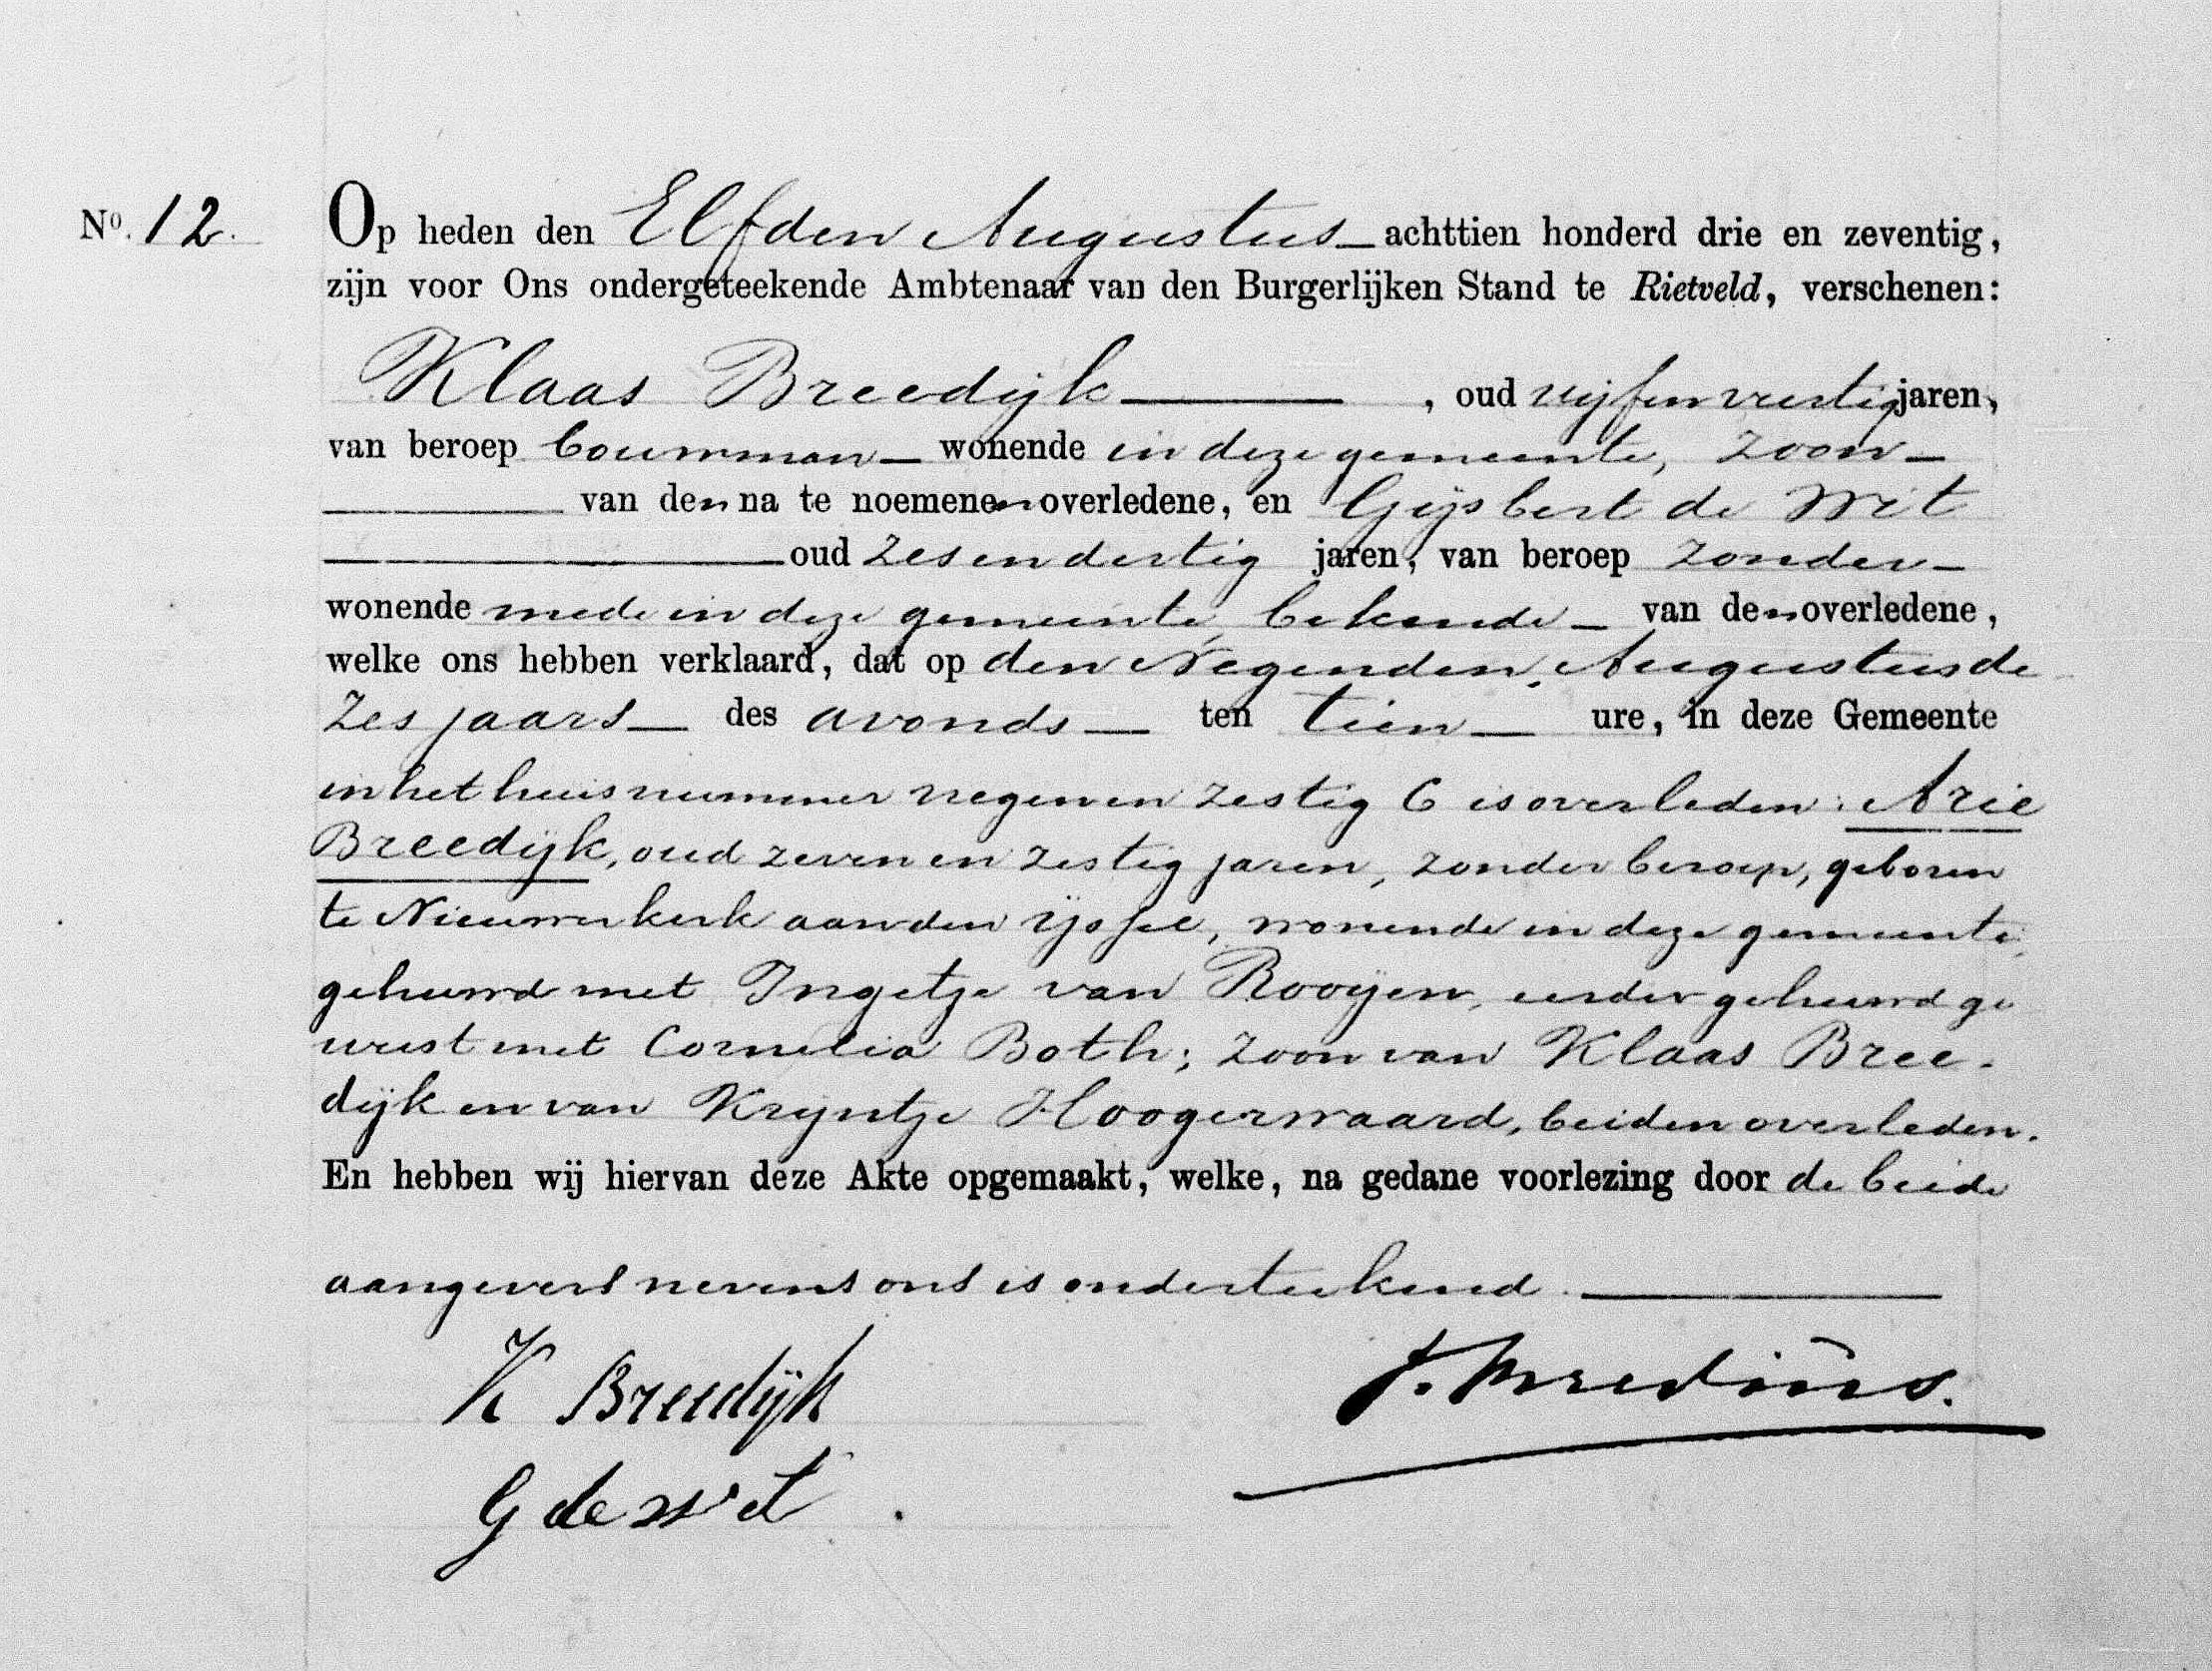 No. 12.
Op heden den Elfden Augustus achttien honderd drie en zeventig,
zijn voor Ons ondergeteekende Ambtenaar van den Burgerlijken Stand te Rietveld, verschenen:
Klaas Breedijk, oud vijfenveertig jaren,
van beroep bouwman wonende in deze gemeente, zoon
van den na te noemenen overledene, en Gijsbert de Wit
oud zesendertig jaren, van beroep zonder
wonende mede in deze gemeente, bekende van den overledene,
welke ons hebben verklaard, dat op den Negenden Augustus de
zes jaars des avonds ten tien ure, in deze Gemeente
in het huis nummer negen en zestig C is overleden: Arie
Breedijk, oud zeven en zestig jaren, zonder beroep, geboren
te Nieuwerkerk aan den IJssel, wonende in deze gemeente,
gehuwd met Ingetje van Rooijen, eerder gehuwd ge
weest met Cornelia Both; zoon van Klaas Bree-
dijk en van Krijntje Hoogerwaard, beiden overleden.
En hebben wij hiervan deze Akte opgemaakt, welke, na gedane voorlezing door de beide
aangevers nevens ons is onderteekend
K Breedijk
G de Wit